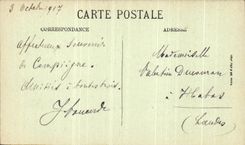 3 Octobre 1917
CARTE POSTALE
CORRESPONDANCE
ADRESSE
Affectueux Souvenir
de Compiègne.
Amitiés à toutes trois.
Mademoiselle
à Habas
(Landes)